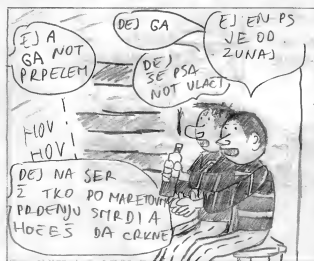 EJ A
GA NOT
PRPELEM
DEJ GA
EJ EN PS
JE OD
ZUNAJ
DEJ
ŠE PSA
NOT VLAČT
HOV!
HOV!
DEJ NA SER
Ž TKO PO MARETOVM
PRDENJU SMRDI A
HOČEŠ DA CRKNE